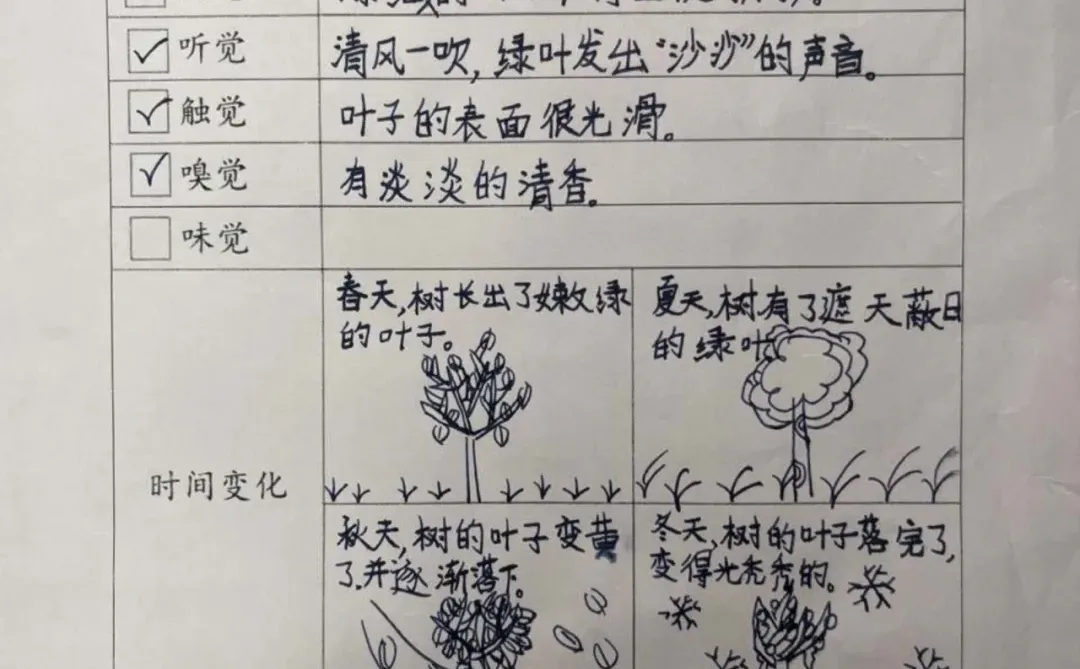 听觉 清风一吹,绿叶发出“沙沙”的声音。
触觉 叶子的表面很光滑。
嗅觉 有淡淡的清香。
味觉
春天,树长出了嫩绿
的叶子。
夏天,树有了遮天蔽日
的绿叶
时间变化
秋天,树的叶子变黄
了.并逐渐落下。
冬天,树的叶子落完了,
变得光秃秃的。